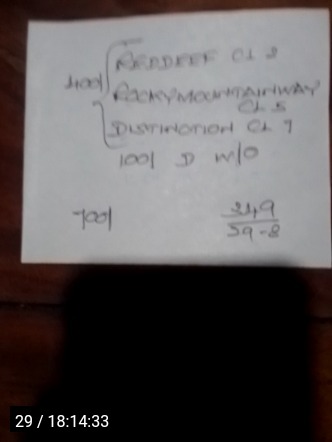 400/
REDDEEF CL 2
ROCKYMOUNTAINWAY
CL 5
DISTINCTION CL 9
100/ D W/O
700/
249
29-8
29 / 18:14:33